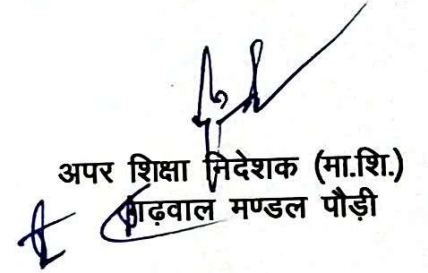 अपर शिक्षा निदेशक (मा.शि.)
गढ़वाल मण्डल पौड़ी